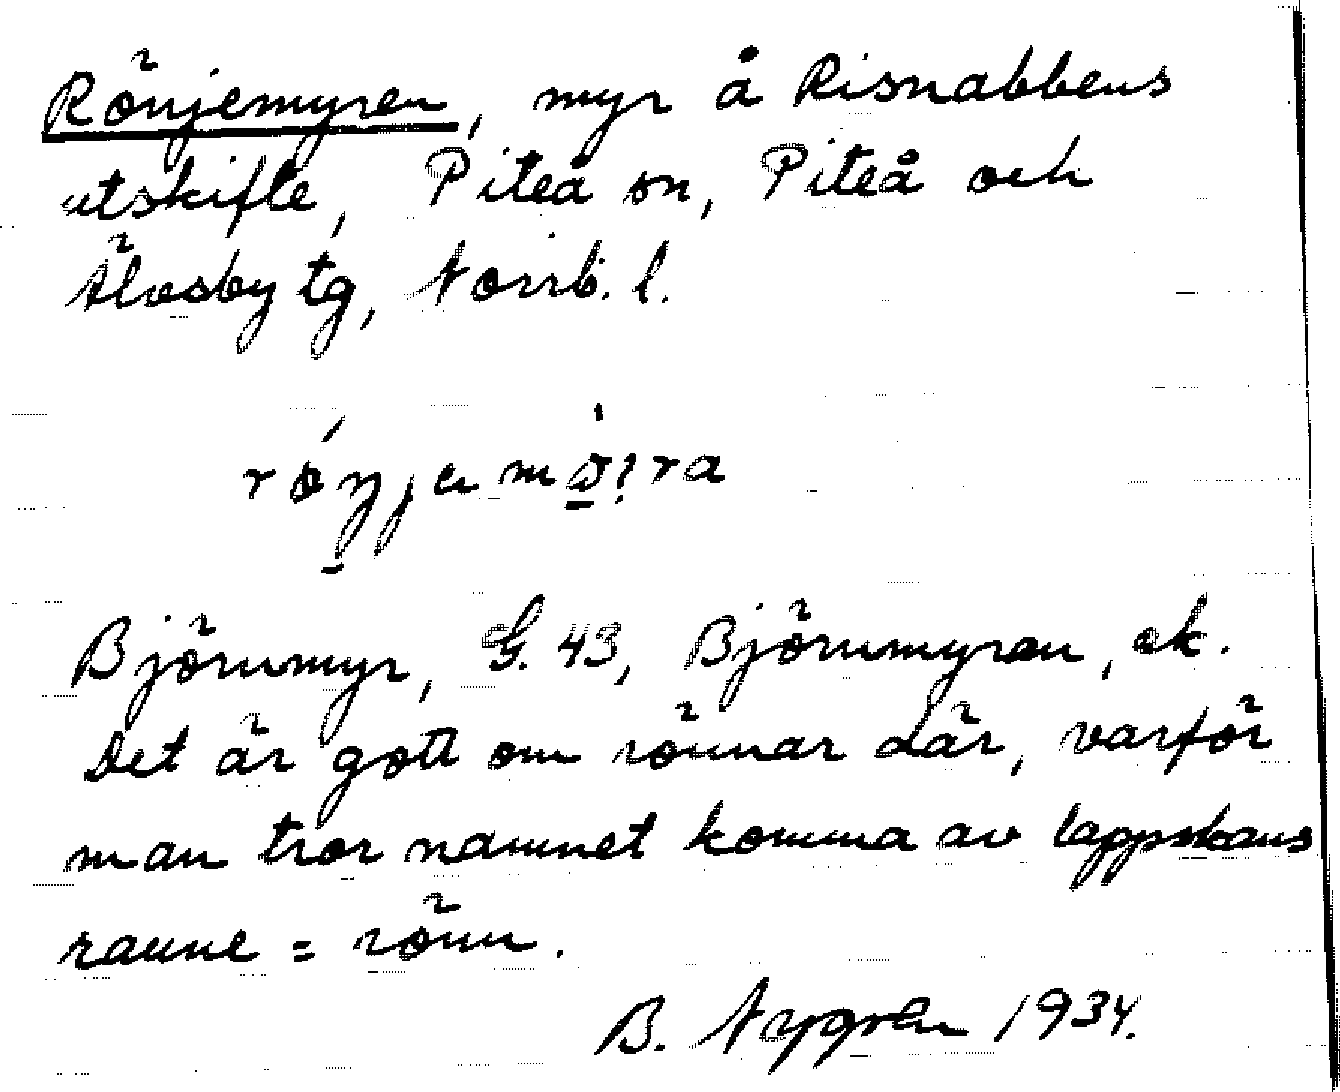 Rönjemyren, myr å Risnabbens
utskifte, Piteå sn, Piteå och
Älvsby tg, Norrb. l.
Björnmyr, G. 43, Björnmyran, ek.
Det är gott om rönnar där, varför
man tror namnet komma av lappskans
raune = rönn.
B. Nygren 1934.